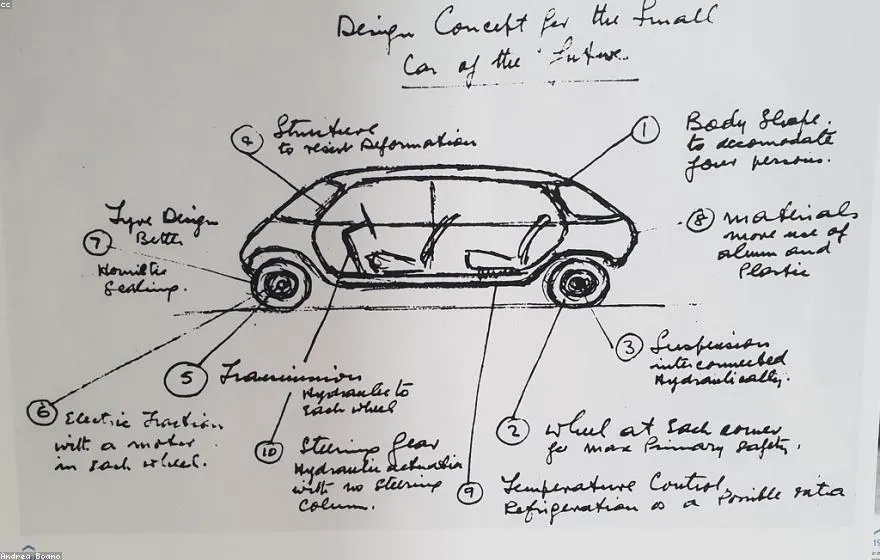 cc
Design Concept for the Small
Car of the Future.
4 Structure
to resist Deformation
1 Body Shape.
to accomodate
four persons.
7 Tyre Design
Better
Sealing.
8 Materials
more use of
alum and
Plastic
3 Suspension
interconnected
Hydraulically.
5 Transmission
Hydraulic to
Each wheel
6 Electric Traction
with a motor
in each wheel.
10 Steering Gear
Hydraulic actuation
with no Steering
Column.
2 Wheel at Each corner
for max Primary Safety.
9 Temperature Control.
Refrigeration as a Possible extra
Andrea Boano